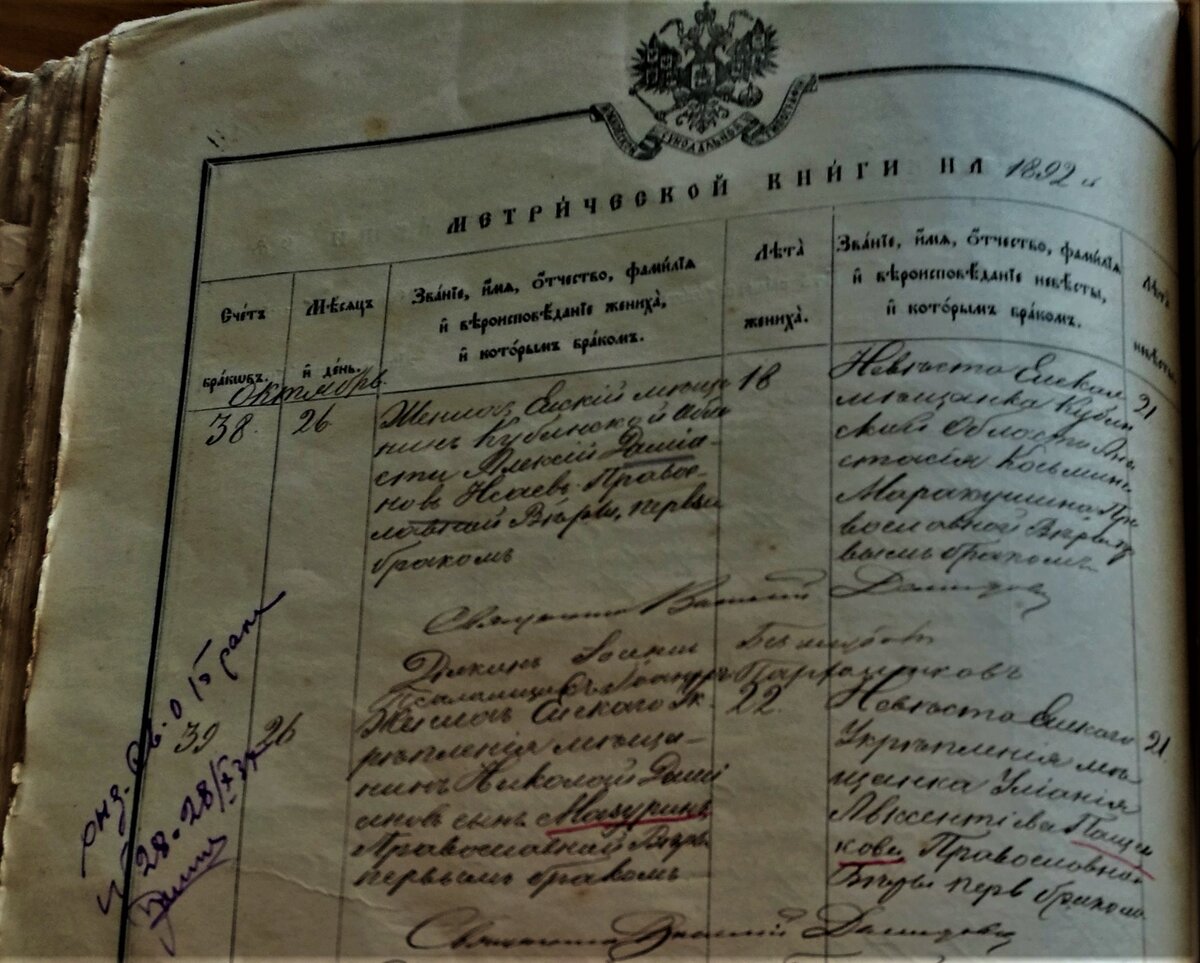 МЕТРИ́ЧЕСКОЙ КНИ́ГИ НА 1892 г
Сче́тъ
бра́ковъ.
Мѣсяцъ
и̑ де́нь.
Зва́нїе, и́мя, о́тчество, фами́лїя
и̑ вѣроисповѣ́данїе жениха̀,
и̑ кото́рымъ бра́комъ.
Лѣта̀
жениха̀.
Зва́нїе, и́мя, о́тчество, фами́лїя
и̑ вѣроисповѣ́данїе невѣ́сты,
и̑ кото́рымъ бра́комъ.
Лѣта̀
невѣ́сты
Октябрь
38.
26
Женихъ, Ейскій мѣща
нинъ Кубанской Обла
сти Алексій Даміа-
новъ Исаевъ. Правос-
лавной Вѣры, первым
бракомъ
18
Невѣста Ейская
мѣщанка Кубан
ской Области Ана
стасія Козьмина
Маракушина Пра
вославной Вѣры пер
вымъ бракомъ
21
Священникъ Василій Давидовъ
Діаконъ Іоаннъ
Псаломщикъ
39
26
Женихъ Ейскаго Ук.
рѣпленія мѣща-
нинъ Николай Даміа
ановъ сынъ Мазуринъ
Православной Вѣры
первымъ бракомъ
22.
Невѣста Ейскаго
Укрѣпленія мѣ
щанка Уліанія
Авксентіева Пащен
кова. Православной
Вѣры перв бракомъ
21
Священникъ Василій Давидовъ
о браке
28/X 37